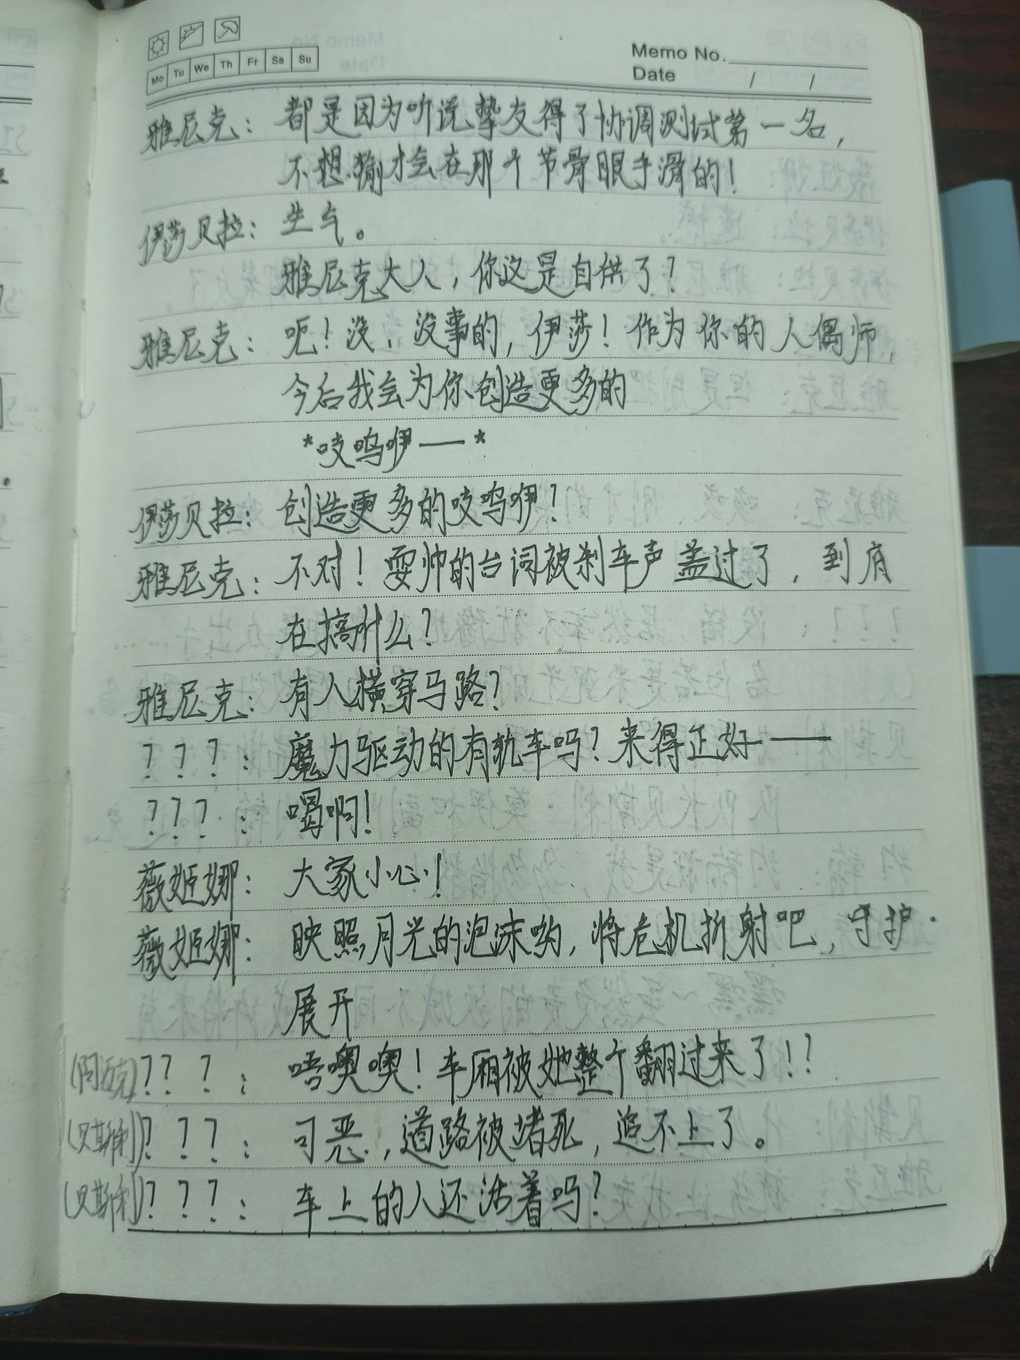 Mo Tu We Th Fr Sa Su
Memo No.
Date / /
雅尼克：都是因为听说挚友得了协调测试第一名，
不想输才会在那个节骨眼手滑的！
伊莎贝拉：生气。
雅尼克大人，你这是自供了？
雅尼克：呃！没、没事的，伊莎！作为你的人偶师，
今后我会为你创造更多的
*吱呜咿——*
伊莎贝拉：创造更多的吱呜咿？
雅尼克：不对！耍帅的台词被刹车声盖过了，到底
在搞什么？
雅尼克：有人横穿马路？
？？？：魔力驱动的有轨车吗？来得正好——
？？？：喝啊！
薇姬娜：大家小心！
薇姬娜：映照月光的泡沫哟，将危机折射吧，守护·
展开
？？？：唔噢噢！车厢被她整个翻过来了！？
(贝斯利)？？？：可恶，道路被堵死，追不上了。
(贝斯利)？？？：车上的人还活着吗？